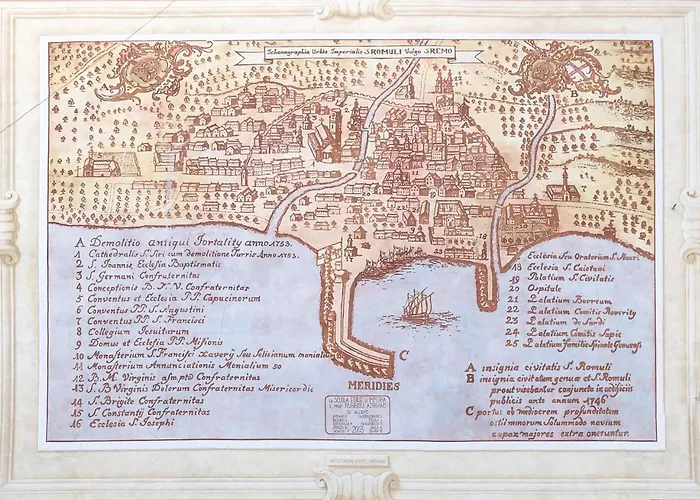 Ichanographia Urbis Imperialis S. ROMULI Vulgo S. REMO
B
A Demolitio antiqui Fortality anno 1753.
1 Cathedralis S. Siri cum demolitione Turris Anno 1753.
2 S. Joannis Ecclesia Baptismatis
3 S. Germani Confraternitas
4 Conceptionis B. M. V. Confraternitas
5 Conventus et Ecclesia PP. Capucinorum
6 Conventus PP. S. Augustini
7 Conventus PP. S. Francisci
8 Collegium Jesuitarum
9 Domus et Ecclesia PP. Misionis
10 Monasterium S. Francisci Xavery Seu Selisianum monialium
11 Monasterium Annunciationis Monialium
12 B. M. Virginis Confraternitas
13 S. B Virginis Dolorum Confraternitas Misericordie
14 S. Brigite Confraternitas
15 S. Constantij Confraternitas
16 Ecclesia S. Josephi
Ecclesia Seu Oratorium S. Mauri
18 Ecclesia S. Caietani
19 Palatium S. Civitatis
20 Ospitale
21 Palatium Borreum
22 Palatium Comitis Roverity
23 Palatium de Sardi
24 Palatium Comitis Sapie
25 Palatium familie Spinole Genuensis
A insignia civitatis S. Romuli
B insignia civitatum genue et S. Romuli
prout videbantur conjuncta in edificiis
publicis ante annum 1746
C portus ob mediocrem profunditatem
ostii minorum Solummodo navium
capax majores extra oneruntur.
C
MERIDIES
LA SCUOLA EDILE D'IMPERIA